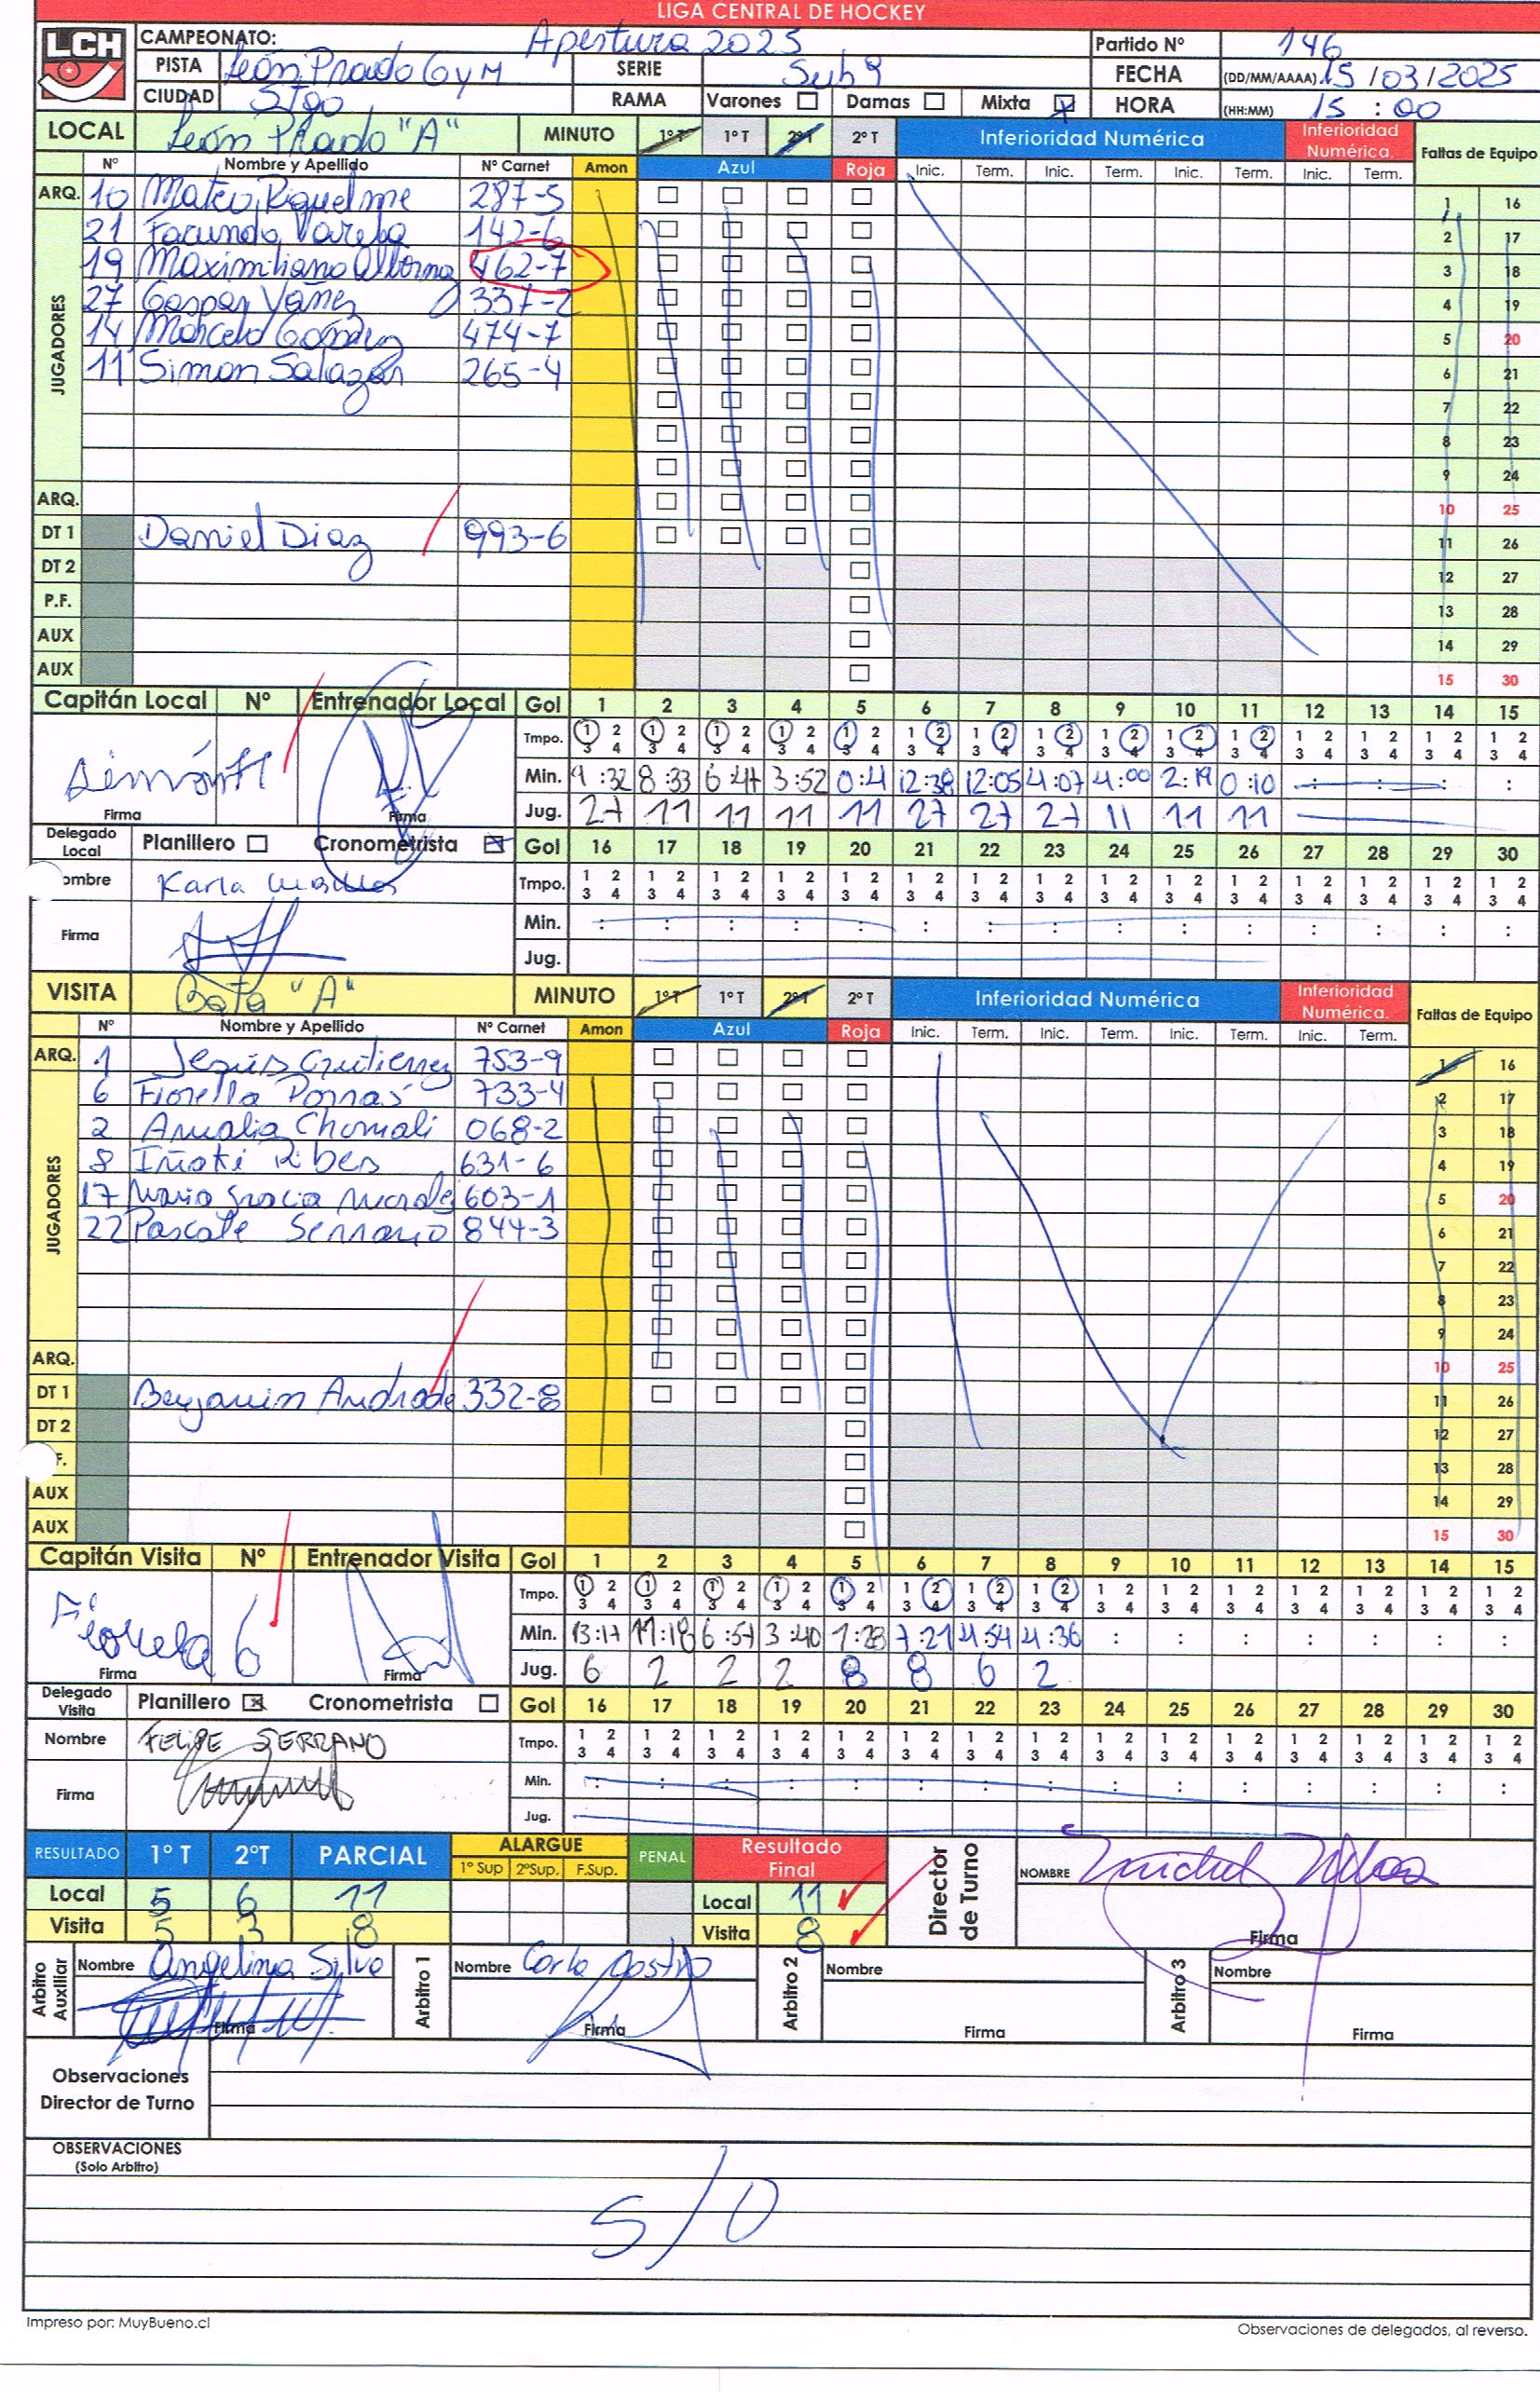 LIGA CENTRAL DE HOCKEY
LCH
CAMPEONATO: Apertura 2025 Partido Nº 146
PISTA León Prado Gym SERIE Sub 9 FECHA (DD/MM/AAAA) 15/03/2025
CIUDAD Stgo RAMA Varones Damas Mixta HORA (HH:MM) 15:00
LOCAL León Prado "A" MINUTO 1º T 1º T 2º T 2º T Inferioridad Numérica Inferioridad Numérica. Faltas de Equipo
Nº Nombre y Apellido Nº Carnet Amon Azul Roja Inic. Term. Inic. Term. Inic. Term. Inic. Term.
ARQ. 10 Mateo Riquelme 287-5 1 16
JUGADORES
21 Facundo Varela 142-6 2 17
19 Maximiliano 462-7 3 18
27 Gaspar Yañez 337-2 4 19
14 Marcelo 474-7 5 20
11 Simon Salazar 265-4 6 21
7 22
8 23
9 24
ARQ. 10 25
DT 1 Daniel Diaz 993-6 11 26
DT 2 12 27
P.F. 13 28
AUX 14 29
AUX 15 30
Capitán Local Nº Entrenador Local Gol 1 2 3 4 5 6 7 8 9 10 11 12 13 14 15
Tmpo. 1 2 1 2 1 2 1 2 1 2 1 2 1 2 1 2 1 2 1 2 1 2 1 2 1 2 1 2 1 2
3 4 3 4 3 4 3 4 3 4 3 4 3 4 3 4 3 4 3 4 3 4 3 4 3 4 3 4 3 4
Min. 9:32 8:33 6:47 3:52 0:4 12:38 12:05 4:07 4:00 2:19 0:10 : : : :
Firma Firma Jug. 27 11 11 11 11 27 27 27 11 11 11
Delegado Local Planillero Cronometrista Gol 16 17 18 19 20 21 22 23 24 25 26 27 28 29 30
ombre Karla Tmpo. 1 2 1 2 1 2 1 2 1 2 1 2 1 2 1 2 1 2 1 2 1 2 1 2 1 2 1 2 1 2
3 4 3 4 3 4 3 4 3 4 3 4 3 4 3 4 3 4 3 4 3 4 3 4 3 4 3 4 3 4
Firma Min. : : : : : : : : : : : : : : :
Jug.
VISITA Bata "A" MINUTO 1º T 1º T 2º T 2º T Inferioridad Numérica Inferioridad Numérica. Faltas de Equipo
Nº Nombre y Apellido Nº Carnet Amon Azul Roja Inic. Term. Inic. Term. Inic. Term. Inic. Term.
ARQ. 1 Jesús Gutierrez 753-9 1 16
JUGADORES
6 Fiorella Porras 733-4 2 17
2 Amalia Chomali 068-2 3 18
8 Iñaki Ribes 631-6 4 19
17 Maria Gracia Morale 603-1 5 20
22 Pascale Serrano 844-3 6 21
7 22
8 23
9 24
ARQ. 10 25
DT 1 Benjamin Andrade 332-8 11 26
DT 2 12 27
F. 13 28
AUX 14 29
AUX 15 30
Capitán Visita Nº Entrenador Visita Gol 1 2 3 4 5 6 7 8 9 10 11 12 13 14 15
Tmpo. 1 2 1 2 1 2 1 2 1 2 1 2 1 2 1 2 1 2 1 2 1 2 1 2 1 2 1 2 1 2
3 4 3 4 3 4 3 4 3 4 3 4 3 4 3 4 3 4 3 4 3 4 3 4 3 4 3 4 3 4
Fiorela 6 Min. 13:17 11:18 6:57 3:40 1:23 7:21 4:54 4:36 : : : : : : :
Firma Firma Jug. 6 2 2 2 8 8 6 2
Delegado Visita Planillero Cronometrista Gol 16 17 18 19 20 21 22 23 24 25 26 27 28 29 30
Nombre FELIPE SERRANO Tmpo. 1 2 1 2 1 2 1 2 1 2 1 2 1 2 1 2 1 2 1 2 1 2 1 2 1 2 1 2 1 2
3 4 3 4 3 4 3 4 3 4 3 4 3 4 3 4 3 4 3 4 3 4 3 4 3 4 3 4 3 4
Firma Min. : : : : : : : : : : : : : : :
Jug.
RESULTADO 1º T 2ºT PARCIAL ALARGUE 1º Sup 2ºSup. F.Sup. PENAL Resultado Final Director de Turno NOMBRE
Local 5 6 11 Local 11
Visita 5 3 8 Visita 8 Firma
Arbitro Auxiliar Nombre Angelina Silva Arbitro 1 Nombre Carla Castro Arbitro 2 Nombre Arbitro 3 Nombre
Firma Firma Firma Firma
Observaciones
Director de Turno
OBSERVACIONES
(Solo Arbitro)
S/O
Impreso por: MuyBueno.cl
Observaciones de delegados, al reverso.